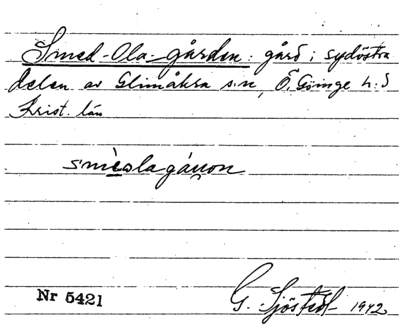 Smed-Ola-gården: gård i sydöstra
delen av Glimåkra s:n, Ö. Göinge h:d
Krist. län
Nr 5421
G. Sjöstedt 1942